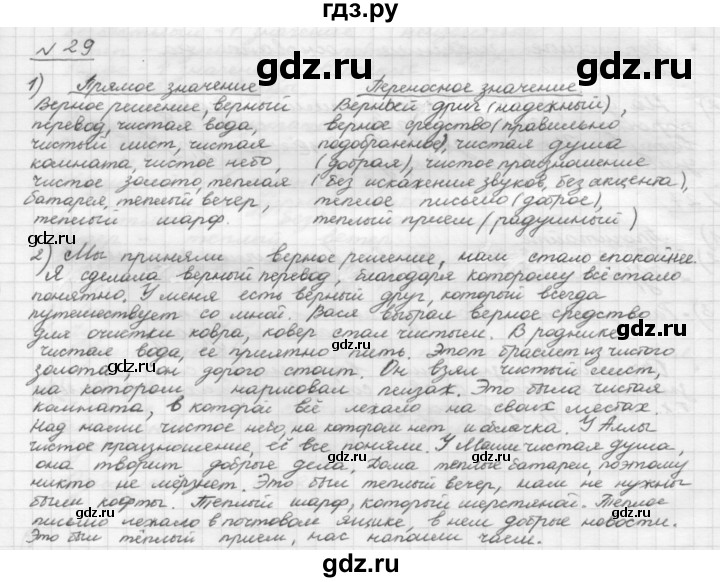 гдз.ру
№ 29
1) Прямое значение Переносное значение
Верное решение, верный Верный друг (надежный),
перевод, чистая вода, верное средство (правильно
чистый лист, чистая подобранное), чистая душа
комната, чистое небо, (добрая), чистое произношение
чистое золото, теплая (без искажения звуков, без акцента),
батарея, теплый вечер, теплое письмо (доброе),
теплый шарф. теплый прием (радушный)
gdz.ru gdz.ru
2) Мы приняли верное решение, нам стало спокойнее.
Я сделала верный перевод, благодаря которому всё стало
понятно. У меня есть верный друг, который всегда
путешествует со мной. Вася выбрал верное средство
для очистки ковра, ковер стал чистым. В роднике
gdz.ru gdz.ru
чистая вода, её приятно пить. Этот браслет из чистого
золота, он дорого стоит. Он взял чистый лист,
на котором нарисовал пейзаж. Это была чистая
комната, в которой всё лежало на своих местах.
Над нами чистое небо, на котором нет и облачка. У Аллы
gdz.ru gdz.ru
чистое произношение, её все поняли. У Маши чистая душа,
она творит добрые дела. Дома теплые батареи, поэтому
никто не мёрзнет. Это был теплый вечер, нам не нужны
были кофты. Теплый шарф, который шерстяной. Теплое
письмо лежало в почтовом ящике, в нем добрые новости.
Это был тёплый прием, нас напоили чаем.
gdz.ru gdz.ru
gdz.ru